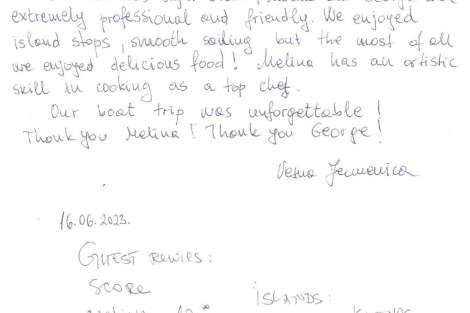 extremely professional and friendly. We enjoyed
island stops, smooth sailing but the most of all
we enjoyed delicious food! Melina has an artistic
skill in cooking as a top chef.
Our boat trip was unforgettable!
Thank you Melina! Thank you George!
Vesna
16.06.2023.
GUEST REWIES:
SCORE
ISLANDS: